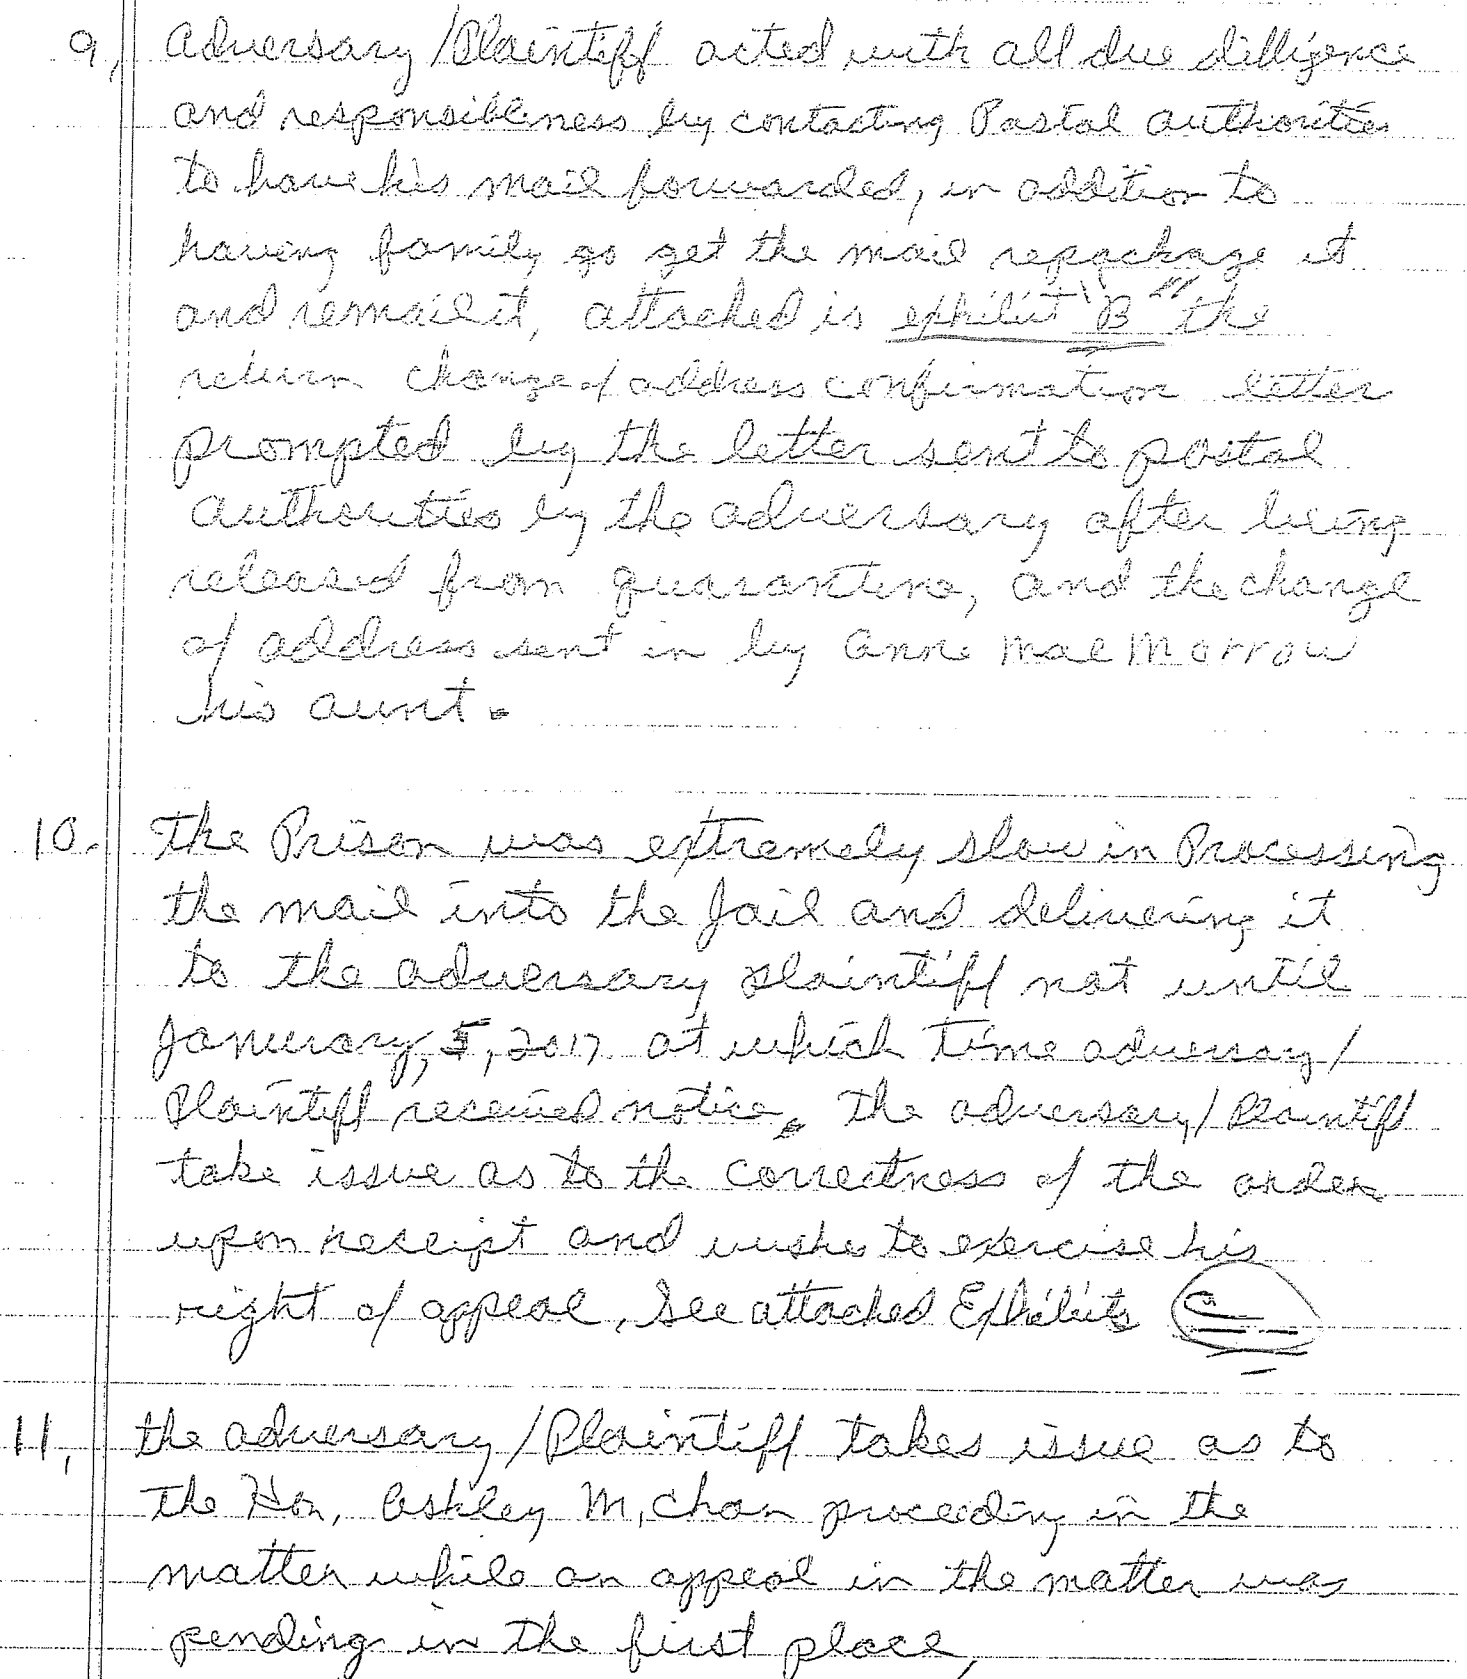 9, Adversary/Plaintiff acted with all due dilligence
and responsibleness by contacting Postal authorities
to have his mail forwarded, in addition to
having family go get the mail repackage it
and remail it, attached is exhibit "B" the
return change of address confirmation letter
prompted by the letter sent to postal
authorities by the adversary after being
released from quarantine, and the change
of address sent in by Anne Mae Morrow
his aunt.
10. The Prison was extremely slow in Processing
the mail into the Jail and delivering it
to the adversary plaintiff not until
January, 5, 2017 at which time adversary/
Plaintiff received notice. The adversary/Plaintiff
take issue as to the correctness of the order
upon receipt and wishes to exercise his
right of appeal, See attached Exhibits C
11, the adversary/Plaintiff takes issue as to
the Hon, Ashley M, Chan proceeding in the
matter while an appeal in the matter was
pending in the first place,